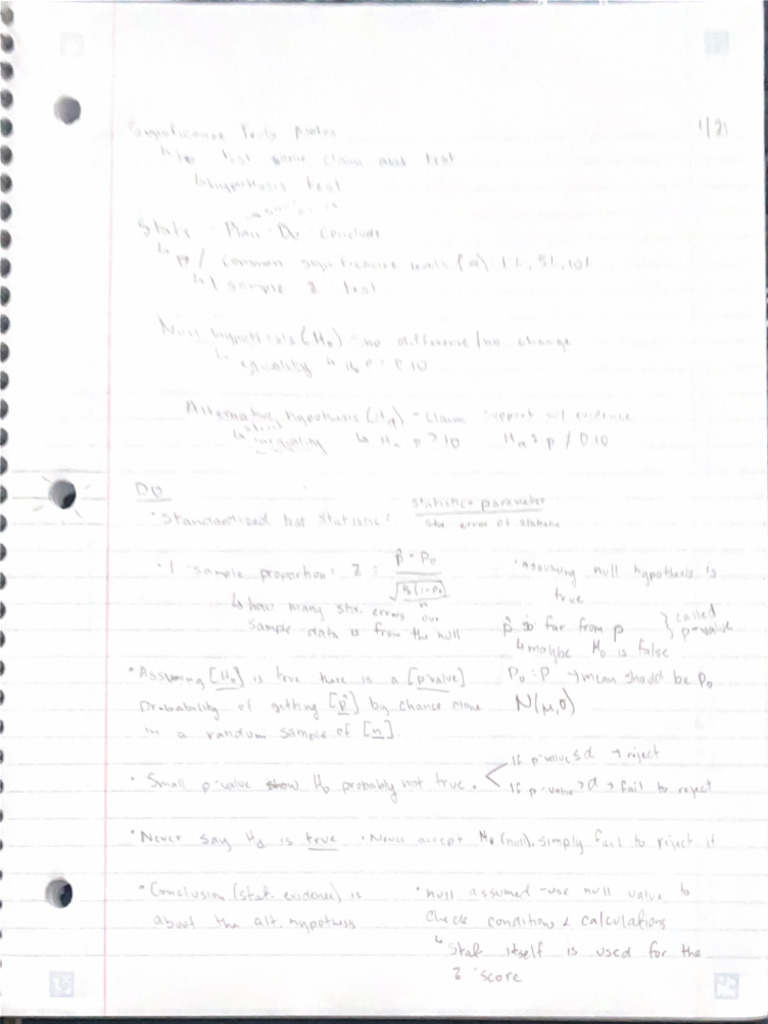 Significance Tests Notes 1/21
↳ to test some claim about test
↳ hypothesis test
State Plan Do Conclude
↳ p / common significance levels (α): 1%, 5%, 10%
↳ 1 sample z test
Null hypothesis (H₀) - no difference/no change
↳ equality ↳ H₀ p = 0.10
Alternative hypothesis (Ha) - claim support w/ evidence
↳ strict inequality ↳ Ha p > 10 Ha: p ≠ 0.10
Do
• Standardized test statistic: statistic - parameter / std error of statistic
• 1 sample proportion: z = (p̂ - p₀) / √(p₀(1-p₀)/n)
↳ how many std. errors our
sample data is from the null
• Assuming null hypothesis is
true
p̂ is far from p } called p-value
↳ maybe H₀ is false
• Assuming [H₀] is true there is a [p-value]
probability of getting [p̂] by chance alone
in a random sample of [n].
p₀ = p → mean should be p₀
N(μ,σ)
• Small p-value show H₀ probably not true. < If p-value ≤ α → reject
If p-value > α → fail to reject
• Never say Ha is true • Never accept H₀ (null), simply fail to reject it
• Conclusion (stat. evidence) is
about the alt. hypothesis
• null assumed - use null value to
check conditions & calculations
↳ Stat itself is used for the
z score